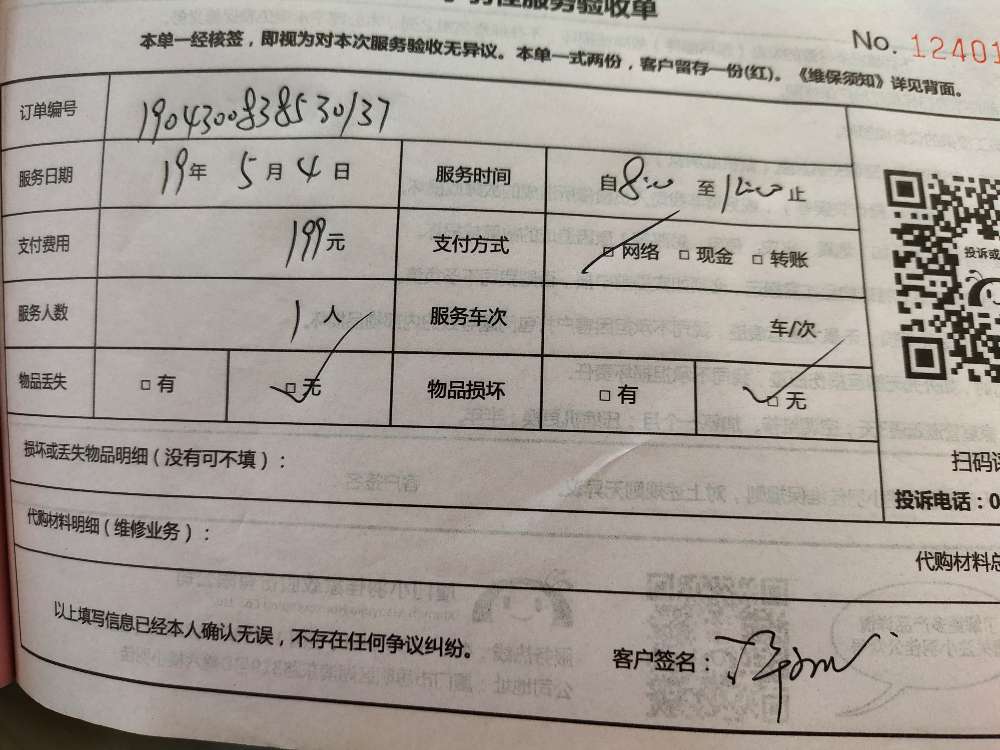 服务验收单
No. 12401
本单一经核签，即视为对本次服务验收无异议。本单一式两份，客户留存一份(红)。《维保须知》详见背面。
订单编号 19043008385 30137
服务日期 19年 5月 4日 服务时间 自8:00 至12:00止
支付费用 199元 支付方式 □网络 □现金 □转账
服务人数 1人 服务车次 车/次
投诉或
物品丢失 □有 □无 物品损坏 □有 □无
损坏或丢失物品明细（没有可不填）：
扫码
投诉电话：0
代购材料明细（维修业务）：
代购材料总
以上填写信息已经本人确认无误，不存在任何争议纠纷。
客户签名：